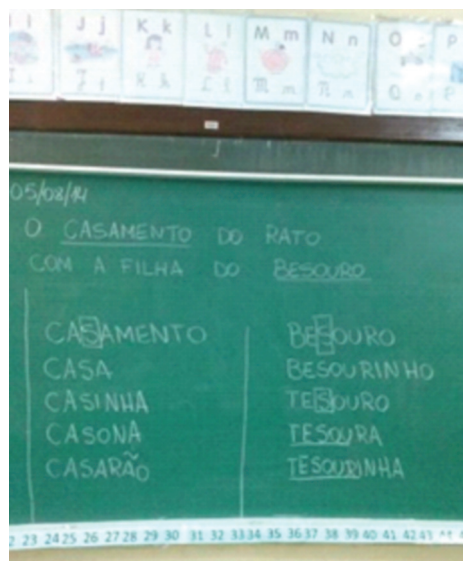 J j K k L l M m N n O P
05/08/14
O CASAMENTO DO RATO
COM A FILHA DO BESOURO
CASAMENTO
CASA
CASINHA
CASONA
CASARÃO
BESOURO
BESOURINHO
TESOURO
TESOURA
TESOURINHA
23 24 25 26 27 28 29 30 31 32 33 34 35 36 37 38 39 40 41 42 43